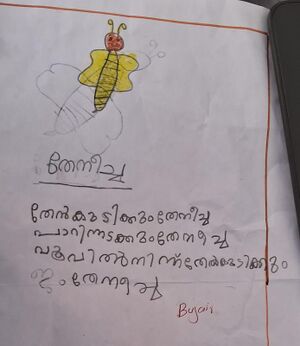 തേനീച്ച
തേൻകുടിക്കുംതേനീച്ച
പാറിനടക്കുംതേനീച്ച
പൂവിൽനിന്ന്തേൻകുടിക്കും
തേനീച്ച